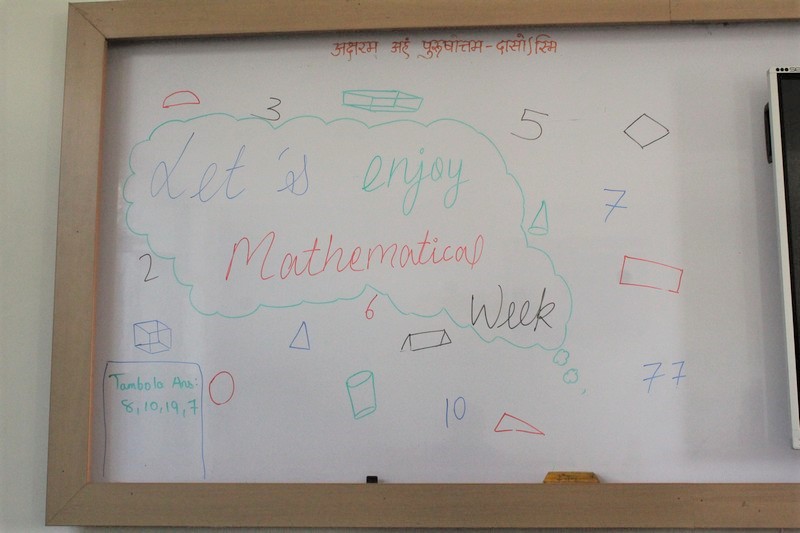 अक्षरम् अहं पुरुषोत्तम-दासोऽस्मि
3
5
Let's enjoy
7
Mathematical
2
6
Week
77
Tambola Ans:
8, 10, 19, 7
10